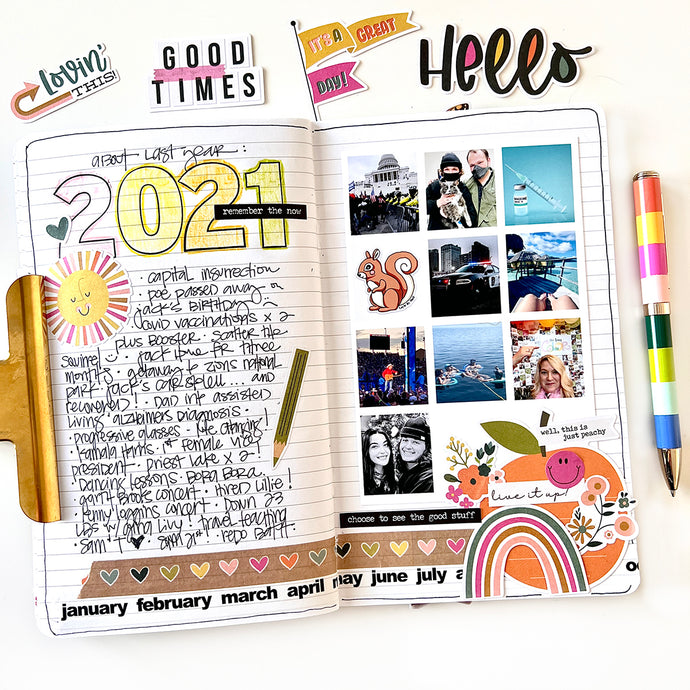 Lovin'
THIS!
GOOD
TIMES
IT'S A GREAT
DAY!
Hello
about last year:
2021
remember the now
• capital insurrection
• poe passed away on
jack's Birthday
covid vaccinations x 2
plus Booster • scatter the
squirrel • jack
months • getaway to zions national
park • jack's car spell... and
recovered! • Dad into assisted
living • alzheimers diagnosis •
• progressive glasses life changing!
• Kamala Harris 1st female vice
president • priest lake x 2!
• Dancing lessons • Bora Bora •
• garth Brooks concert • Hired Lillie!
• Kenny loggins concert • Down 23
LBS w/ Livy! travel teaching
Sam
well, this is
just peachy
live it up!
choose to see the good stuff
january february march april may june july a